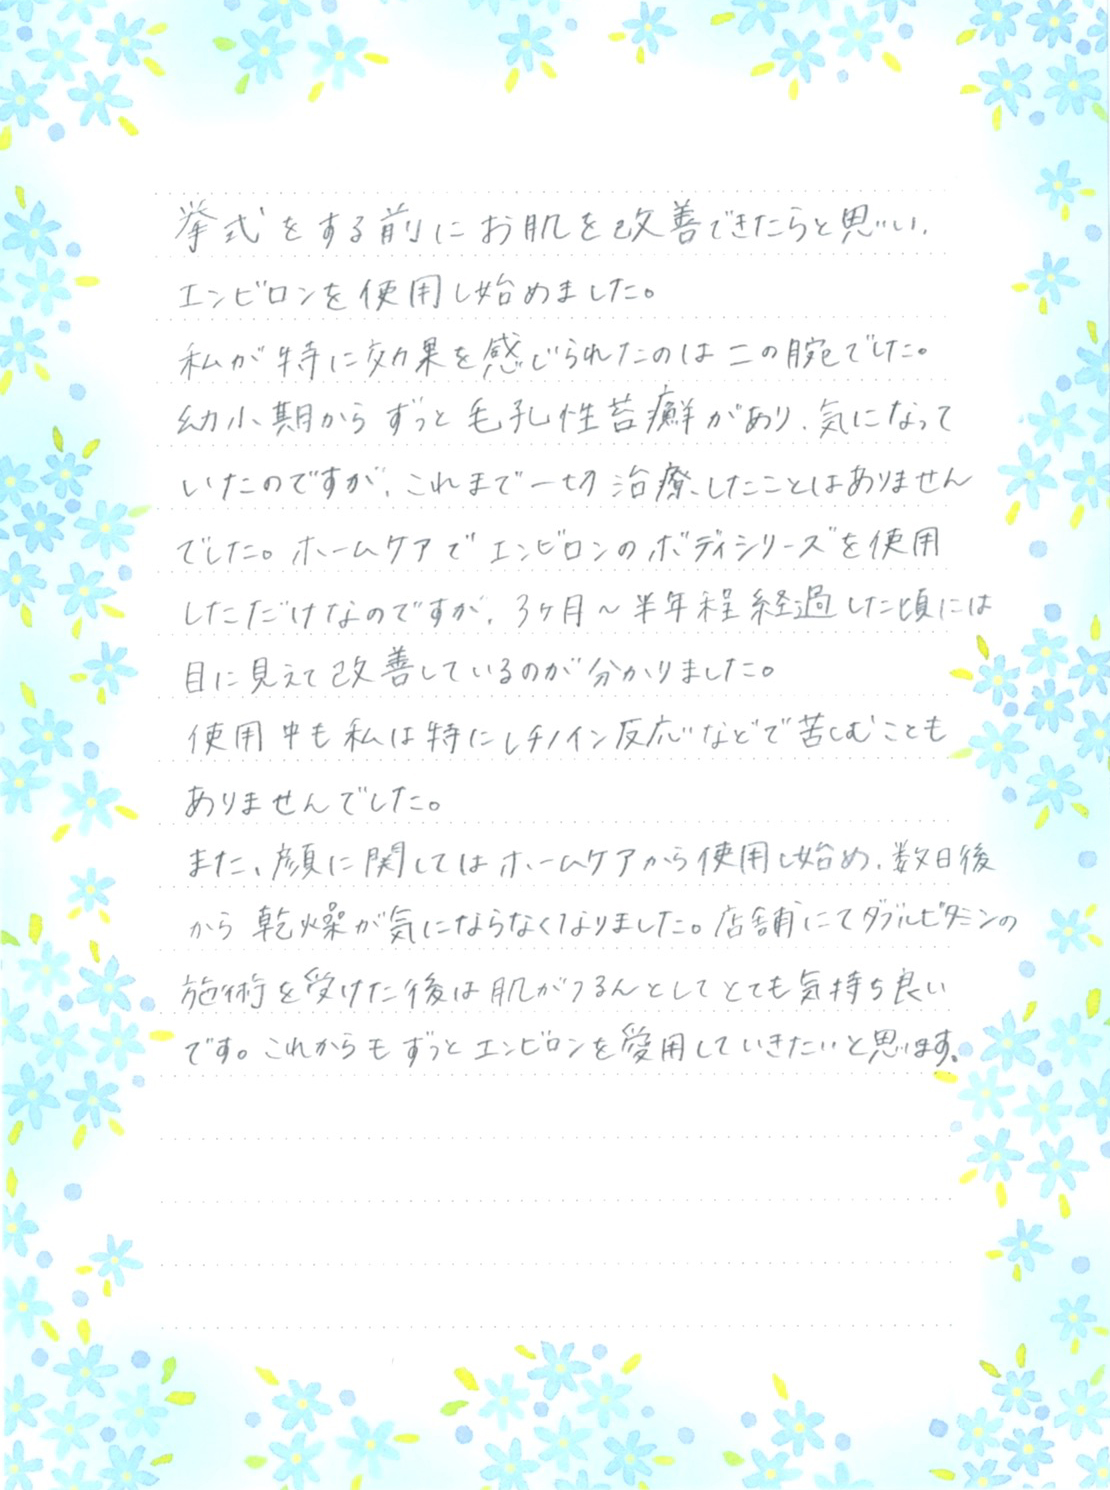 挙式をする前にお肌を改善できたらと思い、
エンビロンを使用し始めました。
私が特に効果を感じられたのは二の腕でした。
幼小期からずっと毛孔性苔癬があり、気になって
いたのですが、これまで一切治療したことはありません
でした。ホームケアでエンビロンのボディシリーズを使用
しただけなのですが、3ヶ月〜半年程経過した頃には
目に見えて改善しているのが分かりました。
使用中も私は特にレチノイン反応などで苦しむことも
ありませんでした。
また、顔に関してはホームケアから使用し始め、数日後
から乾燥が気にならなくなりました。店舗にてダブルビタミンの
施術を受けた後は肌がつるんとしてとても気持ち良い
です。これからもずっとエンビロンを愛用していきたいと思います。